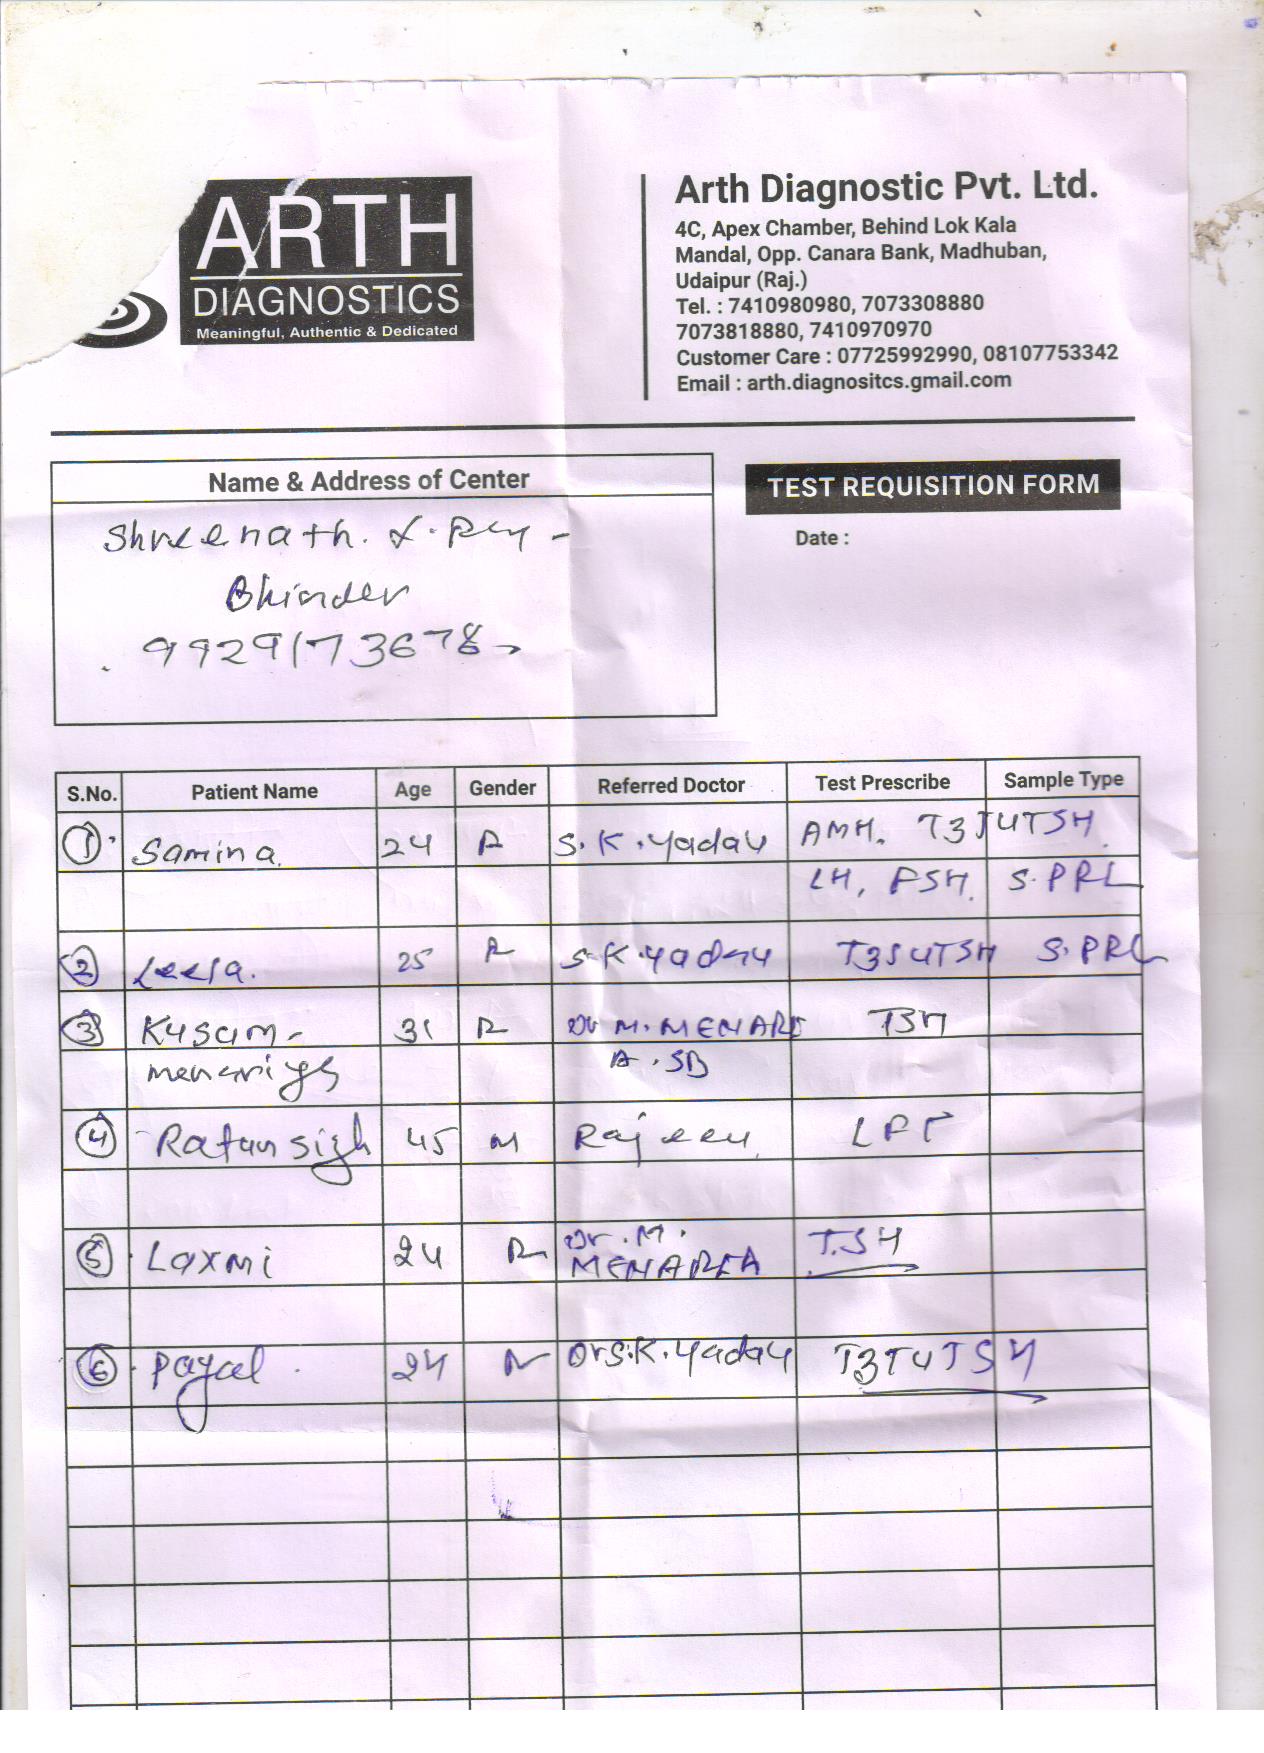 ARTH
DIAGNOSTICS
Meaningful, Authentic & Dedicated
Arth Diagnostic Pvt. Ltd.
4C, Apex Chamber, Behind Lok Kala
Mandal, Opp. Canara Bank, Madhuban,
Udaipur (Raj.)
Tel. : 7410980980, 7073308880
7073818880, 7410970970
Customer Care : 07725992990, 08107753342
Email : arth.diagnositcs.gmail.com
Name & Address of Center
TEST REQUISITION FORM
Date :
Shreenath
Bhinder
9929173678
S.No. Patient Name Age Gender Referred Doctor Test Prescribe Sample Type
1 Samina 24 F S.K.Yadav AMH. T3T4TSH
LH, FSH. S.PRL
2 Leela. 25 F S.K.Yadav T3T4TSH S.PRL
3 Kusum - 31 F Dr M. MENARI TSH
menariya A.SB
4 Ratan sigh 45 M Rajeev LFT
5 Laxmi 24 F Dr. M. TSH
MENAREA
6 Payal 24 Dr S.K.Yadav T3T4TSH